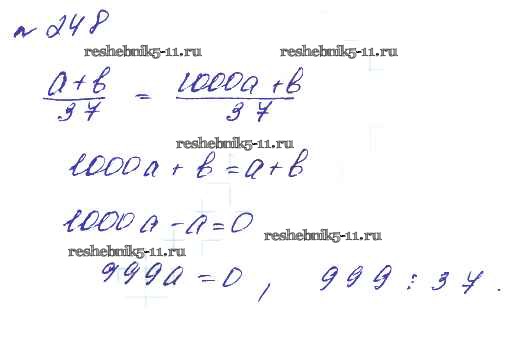 № 248
reshebnik5-11.ru reshebnik5-11.ru
a+в/37 = 1000a+в/37
reshebnik5-11.ru
1000a + в = a + в
1000a - a = 0
reshebnik5-11.ru reshebnik5-11.ru
999a = 0, 999 ⋮ 37.